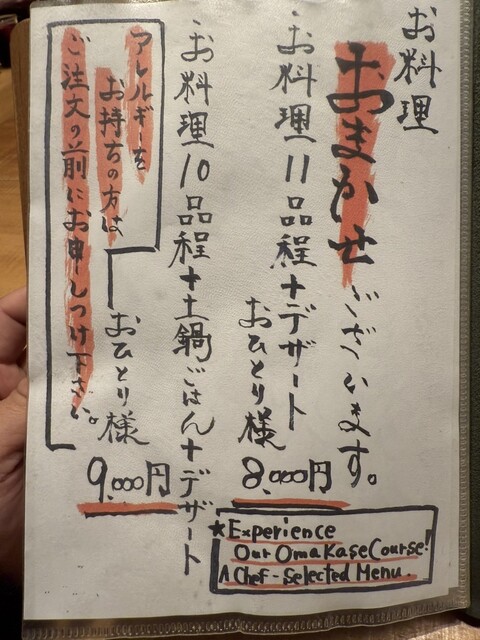 お料理
おまかせございます。
お料理11品程+デザート
おひとり様
8,000円
お料理10品程+土鍋ごはん+デザート
おひとり様
9,000円
アレルギーを
お持ちの方は
ご注文の前にお申しつけ下さい。
★Experience
Our Omakase Course!
A Chef-Selected Menu.